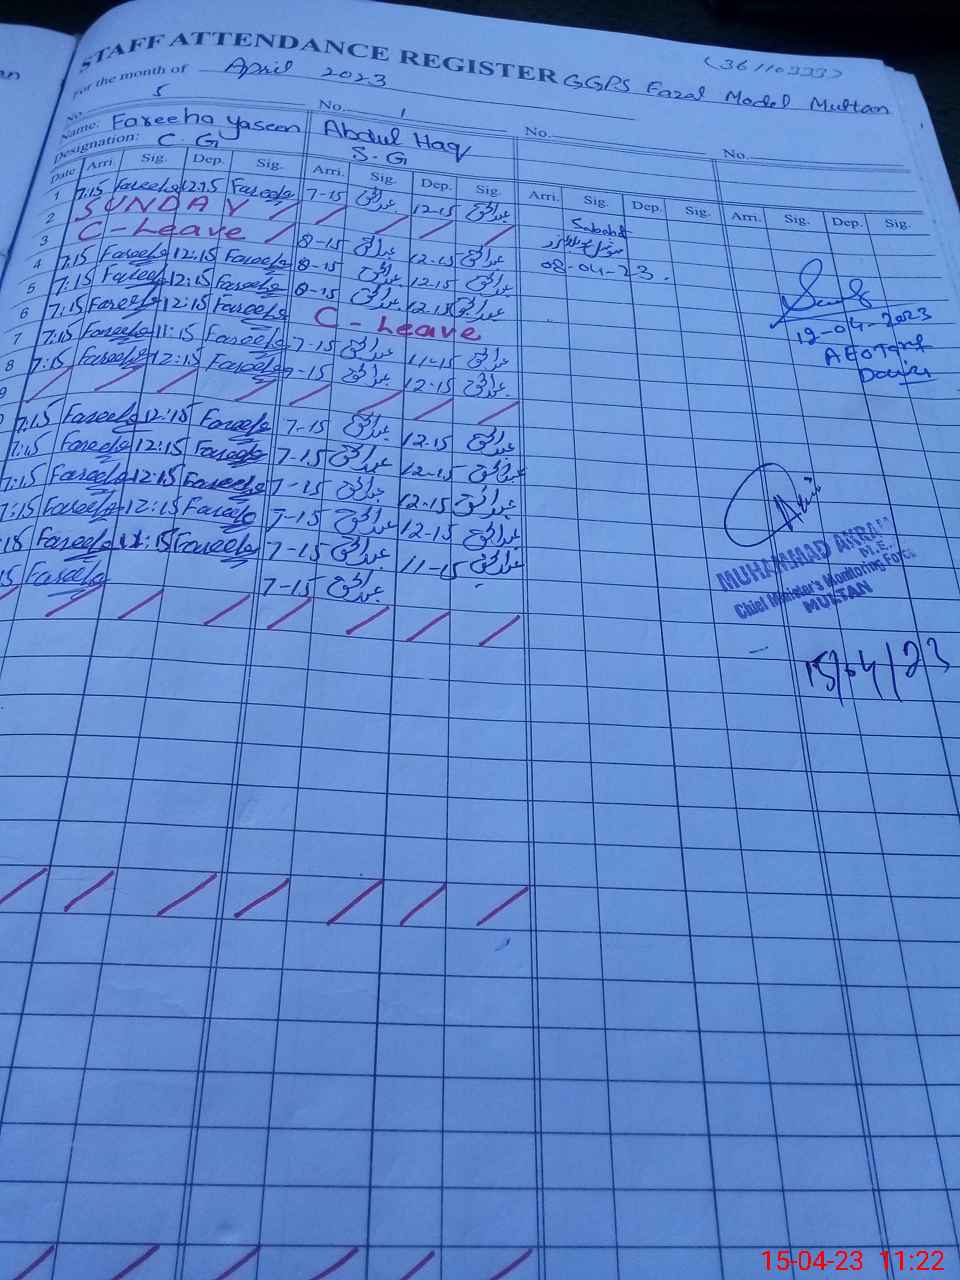 STAFF ATTENDANCE REGISTER GGPS Fazal Model Multan
(36110333)
For the month of April 2023
No. 5 No. 1 No. No.
Name: Fareeha Yaseen Abdul Haq
Designation: C.G S.G
Date Arri. Sig. Dep. Sig. Arri. Sig. Dep. Sig. Arri. Sig. Dep. Sig. Arri. Sig. Dep. Sig.
1 7:15 Fareeha 12:15 Fareeha 7-15 عبدالحق 12-15 عبدالحق
2 SUNDAY
3 C-Leave 8-15 عبدالحق 12-15 عبدالحق
4 7:15 Fareeha 12:15 Fareeha 8-15 عبدالحق 12-15 عبدالحق
5 7:15 Fareeha 12:15 Fareeha 8-15 عبدالحق 12-15 عبدالحق
6 7:15 Fareeha 12:15 Fareeha C-Leave
7 7:15 Fareeha 11:15 Fareeha 7-15 عبدالحق 11-15 عبدالحق
8 7:15 Fareeha 12:15 Fareeha 7-15 عبدالحق 12-15 عبدالحق
9
7:15 Fareeha 12:15 Fareeha 7-15 عبدالحق 12-15 عبدالحق
7:15 Fareeha 12:15 Fareeha 7-15 عبدالحق 12-15 عبدالحق
7:15 Fareeha 12:15 Fareeha 7-15 عبدالحق 12-15 عبدالحق
7:15 Fareeha 12:15 Fareeha 7-15 عبدالحق 12-15 عبدالحق
15 Fareeha 11:15 Fareeha 7-15 عبدالحق 11-15 عبدالحق
15 Fareeha 7-15 عبدالحق
08-04-23.
12-04-2023
AEO
MUHAMMAD AKRAM
M.E.
Chief Minister's Monitoring Force
MULTAN
15/04/23
15-04-23 11:22